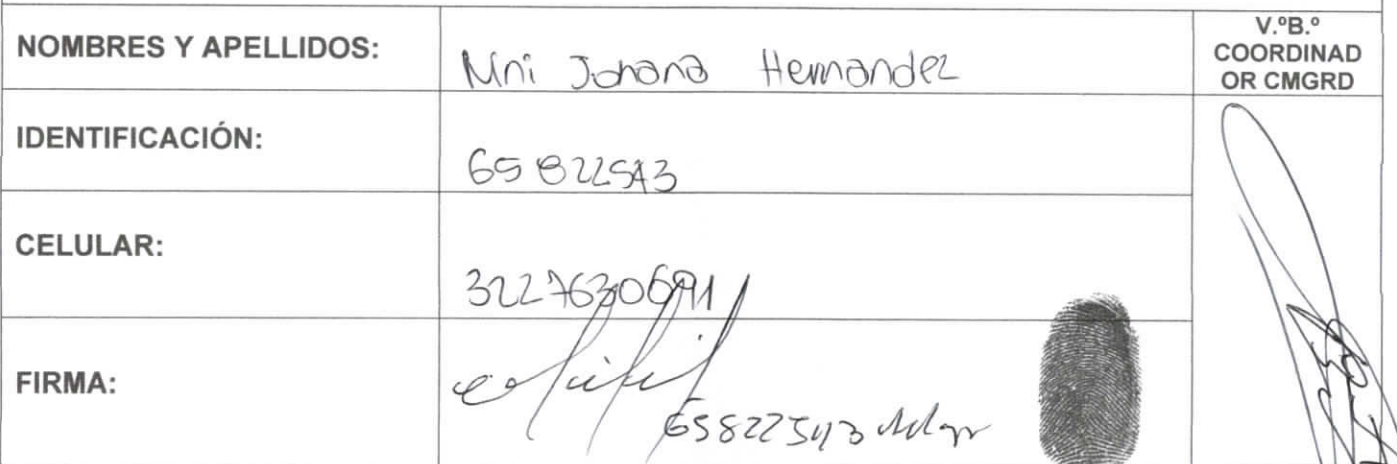 NOMBRES Y APELLIDOS:
Johana Hernandez
V.ºB.º
COORDINAD
OR CMGRD
IDENTIFICACIÓN:
65822543
CELULAR:
3227630691
FIRMA:
65822543